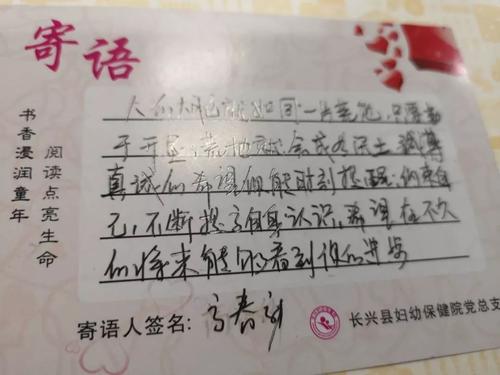 寄语
书香浸润童年
阅读点亮生命
人的大脑就如同一片荒地，只要勤
于开垦，荒地就会成为沃土
真诚的希望你能时刻提醒、约束自
己，不断提高自身认识，希望在不久
的将来能够看到你的进步
寄语人签名：
长兴县妇幼保健院党总支